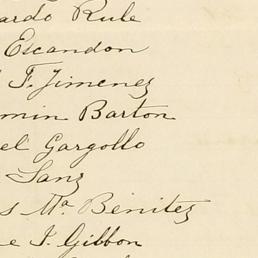 ardo Rule
Escandon
F. Jimenez
min Barton
el Gargollo
Sanz
s Ma. Benites
e I. Gibbon